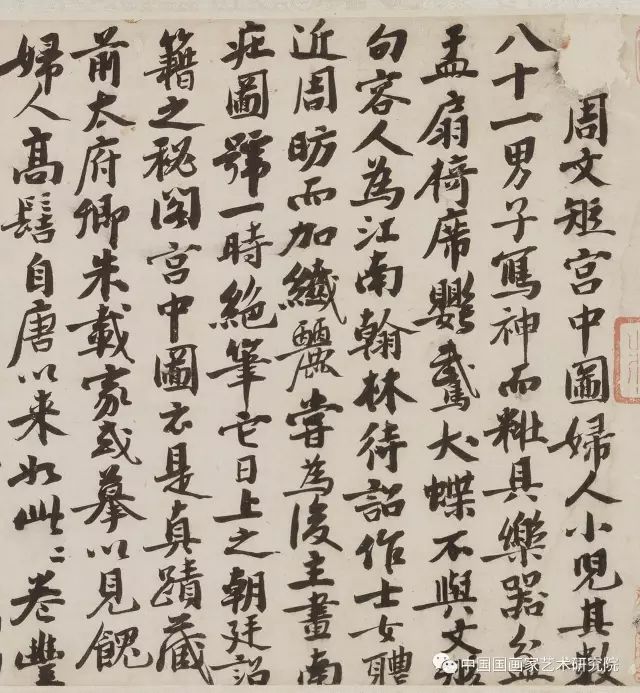 周文矩宮中圖婦人小兒其數
八十一男子寫神而粧具樂器盆
盂扇椅席鸚鵡犬蝶不與文矩
句容人為江南翰林待詔作士女體
近周昉而加纖麗嘗為後主畫南
莊圖號一時絕筆它日上之朝廷詔
籍之秘閣宮中圖云是真蹟藏
前太府卿朱載家或摹以見餽
婦人高髻自唐以来如此〻卷豐
中国国画家艺术研究院